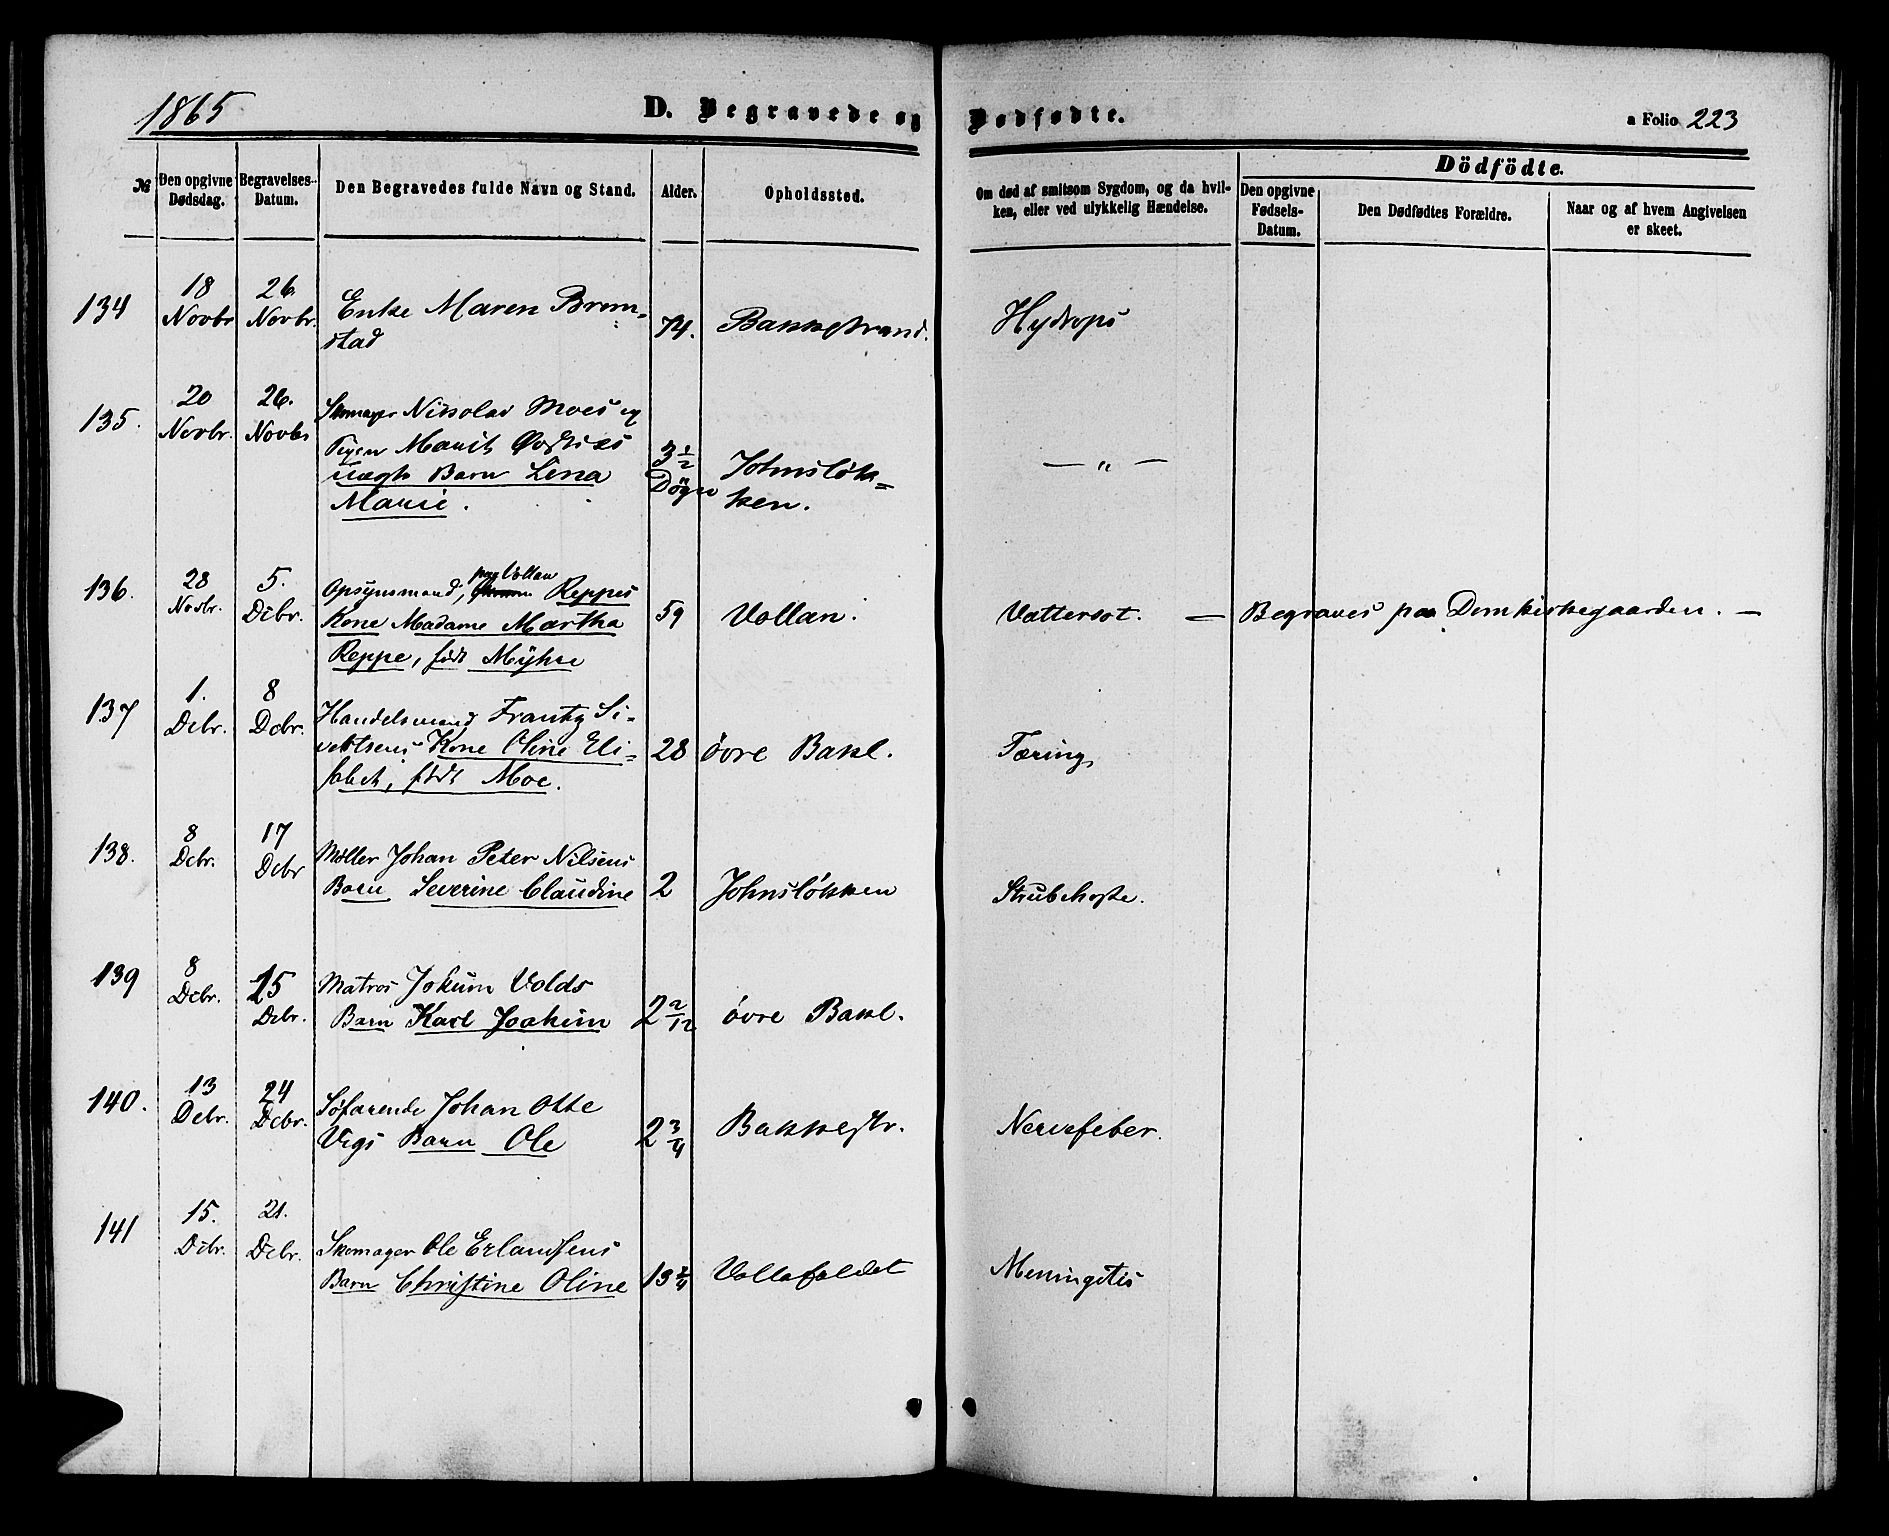 1865
D. Begravede og Dødfødte.
a Folio 223
№
Den opgivne Dødsdag.
Begravelses-Datum.
Den Begravedes fulde Navn og Stand.
Alder.
Opholdssted.
Om død af smitsom Sygdom, og da hvil-
ken, eller ved ulykkelig Hændelse.
Dödfödte.
Den opgivne Fødsels-Datum.
Den Dødfødtes Forældre.
Naar og af hvem Angivelsen er skeet.
134 18 Novbr 26. Novbr. Enke Maren Brem-
stad 74. Bakkestrand. Hydrops
135. 20 Novbr. 26. Novbr Skomager Nikolai Moes og
Pigen Marit
uægte Barn Lena 3 1/2 Døgn Johnsløk=
Marie. ken. — " —
136. 28 Novbr. 5. Dcbr. Opsynsmand, paa Vollan Reppes
Kone Madame Martha 59 Vollan. Vattersot. — Begraves paa Domkirkegaarden. —
Reppe, født Myhre
137 1. Dcbr. 8 Dcbr. Handelsmand Frantz Si-
vertsens Kone Oline Eli= 28 øvre Bakl. Tæring
sabet, født Moe.
138. 8 Dcbr. 17 Dcbr Møller Johan Peter Nilsens
Barn Severine Claudine 2 Johnsløkken Strubehoste.
139 8 Dcbr. 15 Dcbr. Matros Jokum Volds
Barn Karl Joakim 2 2/12 øvre Bakl.
140. 13 Dcbr. 24 Dcbr. Søfarende Johan Otte
Vigs Barn Ole 2 3/4 Bakkestr. Nervefeber.
141 15. Dcbr. 21. Dcbr. Skomager Ole Erlandsens
Barn Christine Oline 13 3/4 Vollafaldet Meningitis